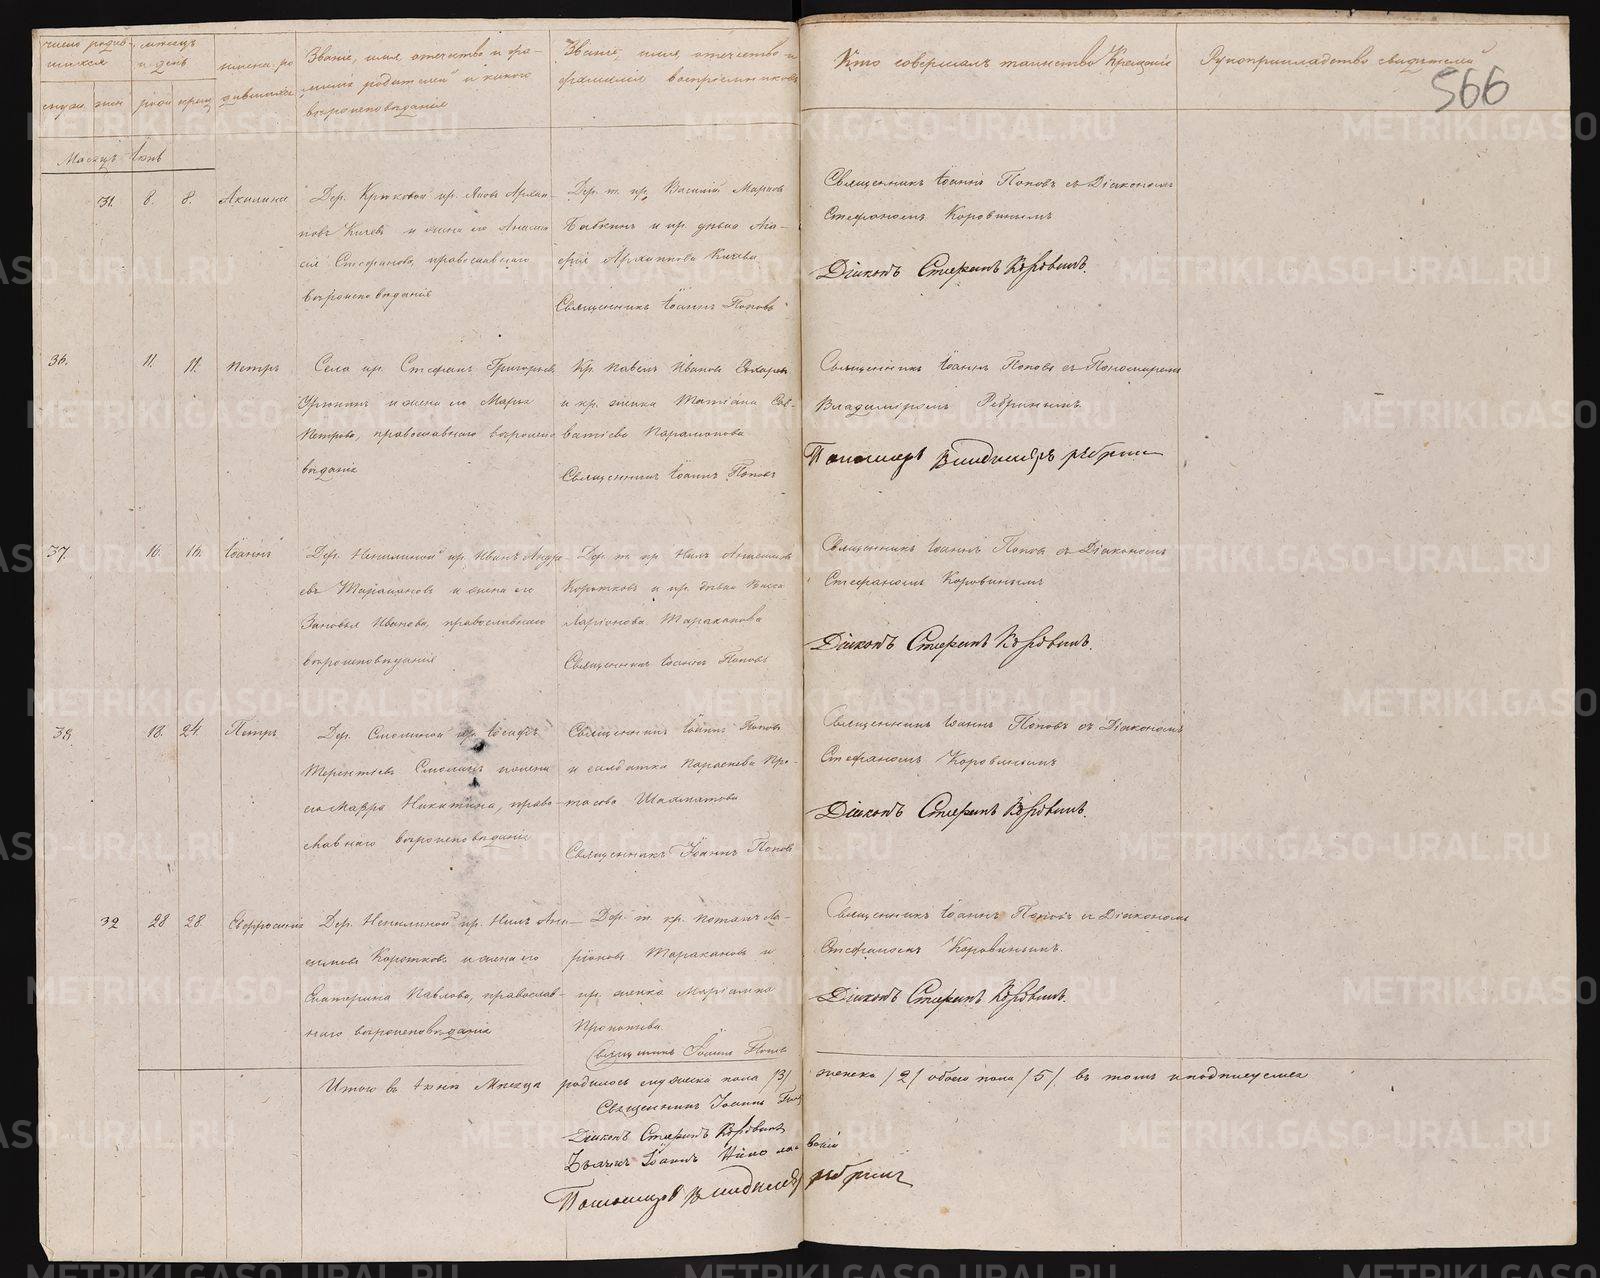 число родившихся
мужс. жен
месяцъ и день
рожд крещ
имена родившихся
Званіе, имя, отечество и фамилія родителей и какого
вѣроисповѣданія
Званіе, имя, отечество и
фамилія воспріемниковъ
Кто совершалъ таинство Крещенія
Рукоприкладство свидѣтелей
566
Месяцъ Іюнь
31. 8. 8. Акилина
Дер. Крюковой кр. Яковъ Архип-
повъ Кичевъ и жена его Анаста-
сія Стефанова, православнаго
вѣроисповѣданія
Дер. т. кр. Василій Марковъ
Бабкинъ и кр. дѣвка Ага-
фія Архиппова Кичева
Священникъ Іоаннъ Поповъ
Священникъ Іоаннъ Поповъ съ Діакономъ
Стефаномъ Коровинымъ
Діаконъ Стефанъ Коровинъ.
36. 11. 11. Петръ
Села кр. Стефанъ Григорьевъ
и жена его Марья
Петрова, православнаго вѣроиспо-
вѣданія
Кр. Павелъ Ивановъ
и кр. женка Татіана Сав-
ватіева Парамонова
Священникъ Іоаннъ Поповъ
Священникъ Іоаннъ Поповъ съ Пономаремъ
Владиміромъ Ребринымъ.
Пономарь Владиміръ Ребринъ
37. 16. 16. Іоаннъ
Дер. Ненилиной кр. Иванъ Андре-
евъ Таракановъ и жена его
Зановья Иванова, православнаго
вѣроисповѣданія
Дер. т. кр. Нилъ Анисимовъ
Коротковъ и кр. дѣвка Васса
Ларіонова Тараканова
Священникъ Іоаннъ Поповъ
Священникъ Іоаннъ Поповъ съ Діакономъ
Стефаномъ Коровинымъ
Діаконъ Стефанъ Коровинъ.
38. 18. 24. Петръ
Дер. Смолиной кр. Іосифъ
Терентіевъ Смолинъ и жена
его Марѳа Никитина, право-
славнаго вѣроисповѣданія
Священникъ Іоаннъ Поповъ
и солдатка Параскева Про-
тасова Шахматова
Священникъ Іоаннъ Поповъ
Священникъ Іоаннъ Поповъ съ Діакономъ
Стефаномъ Коровинымъ
Діаконъ Стефанъ Коровинъ.
32 28 28. Евфросинія
Дер. Ненилиной кр. Нилъ Ани-
симовъ Коротковъ и жена его
Екатерина Павлова, православ-
наго вѣроисповѣданія
Дер. т. кр. Потапъ Ла-
ріоновъ Таракановъ и
кр. женка Маріамна
Прокопьева.
Священникъ Іоаннъ Поповъ
Священникъ Іоаннъ Поповъ съ Діакономъ
Стефаномъ Коровинымъ.
Діаконъ Стефанъ Коровинъ.
Итого въ Іюнѣ Месяцѣ родилось мужеска пола /3/ женска /2/ обоего пола /5/ въ томъ и подписуемся
Священникъ Іоаннъ Поповъ
Діаконъ Стефанъ Коровинъ
Дьячекъ Іоаннъ
Пономарь Владиміръ Ребринъ
METRIKI.GASO-URAL.RU